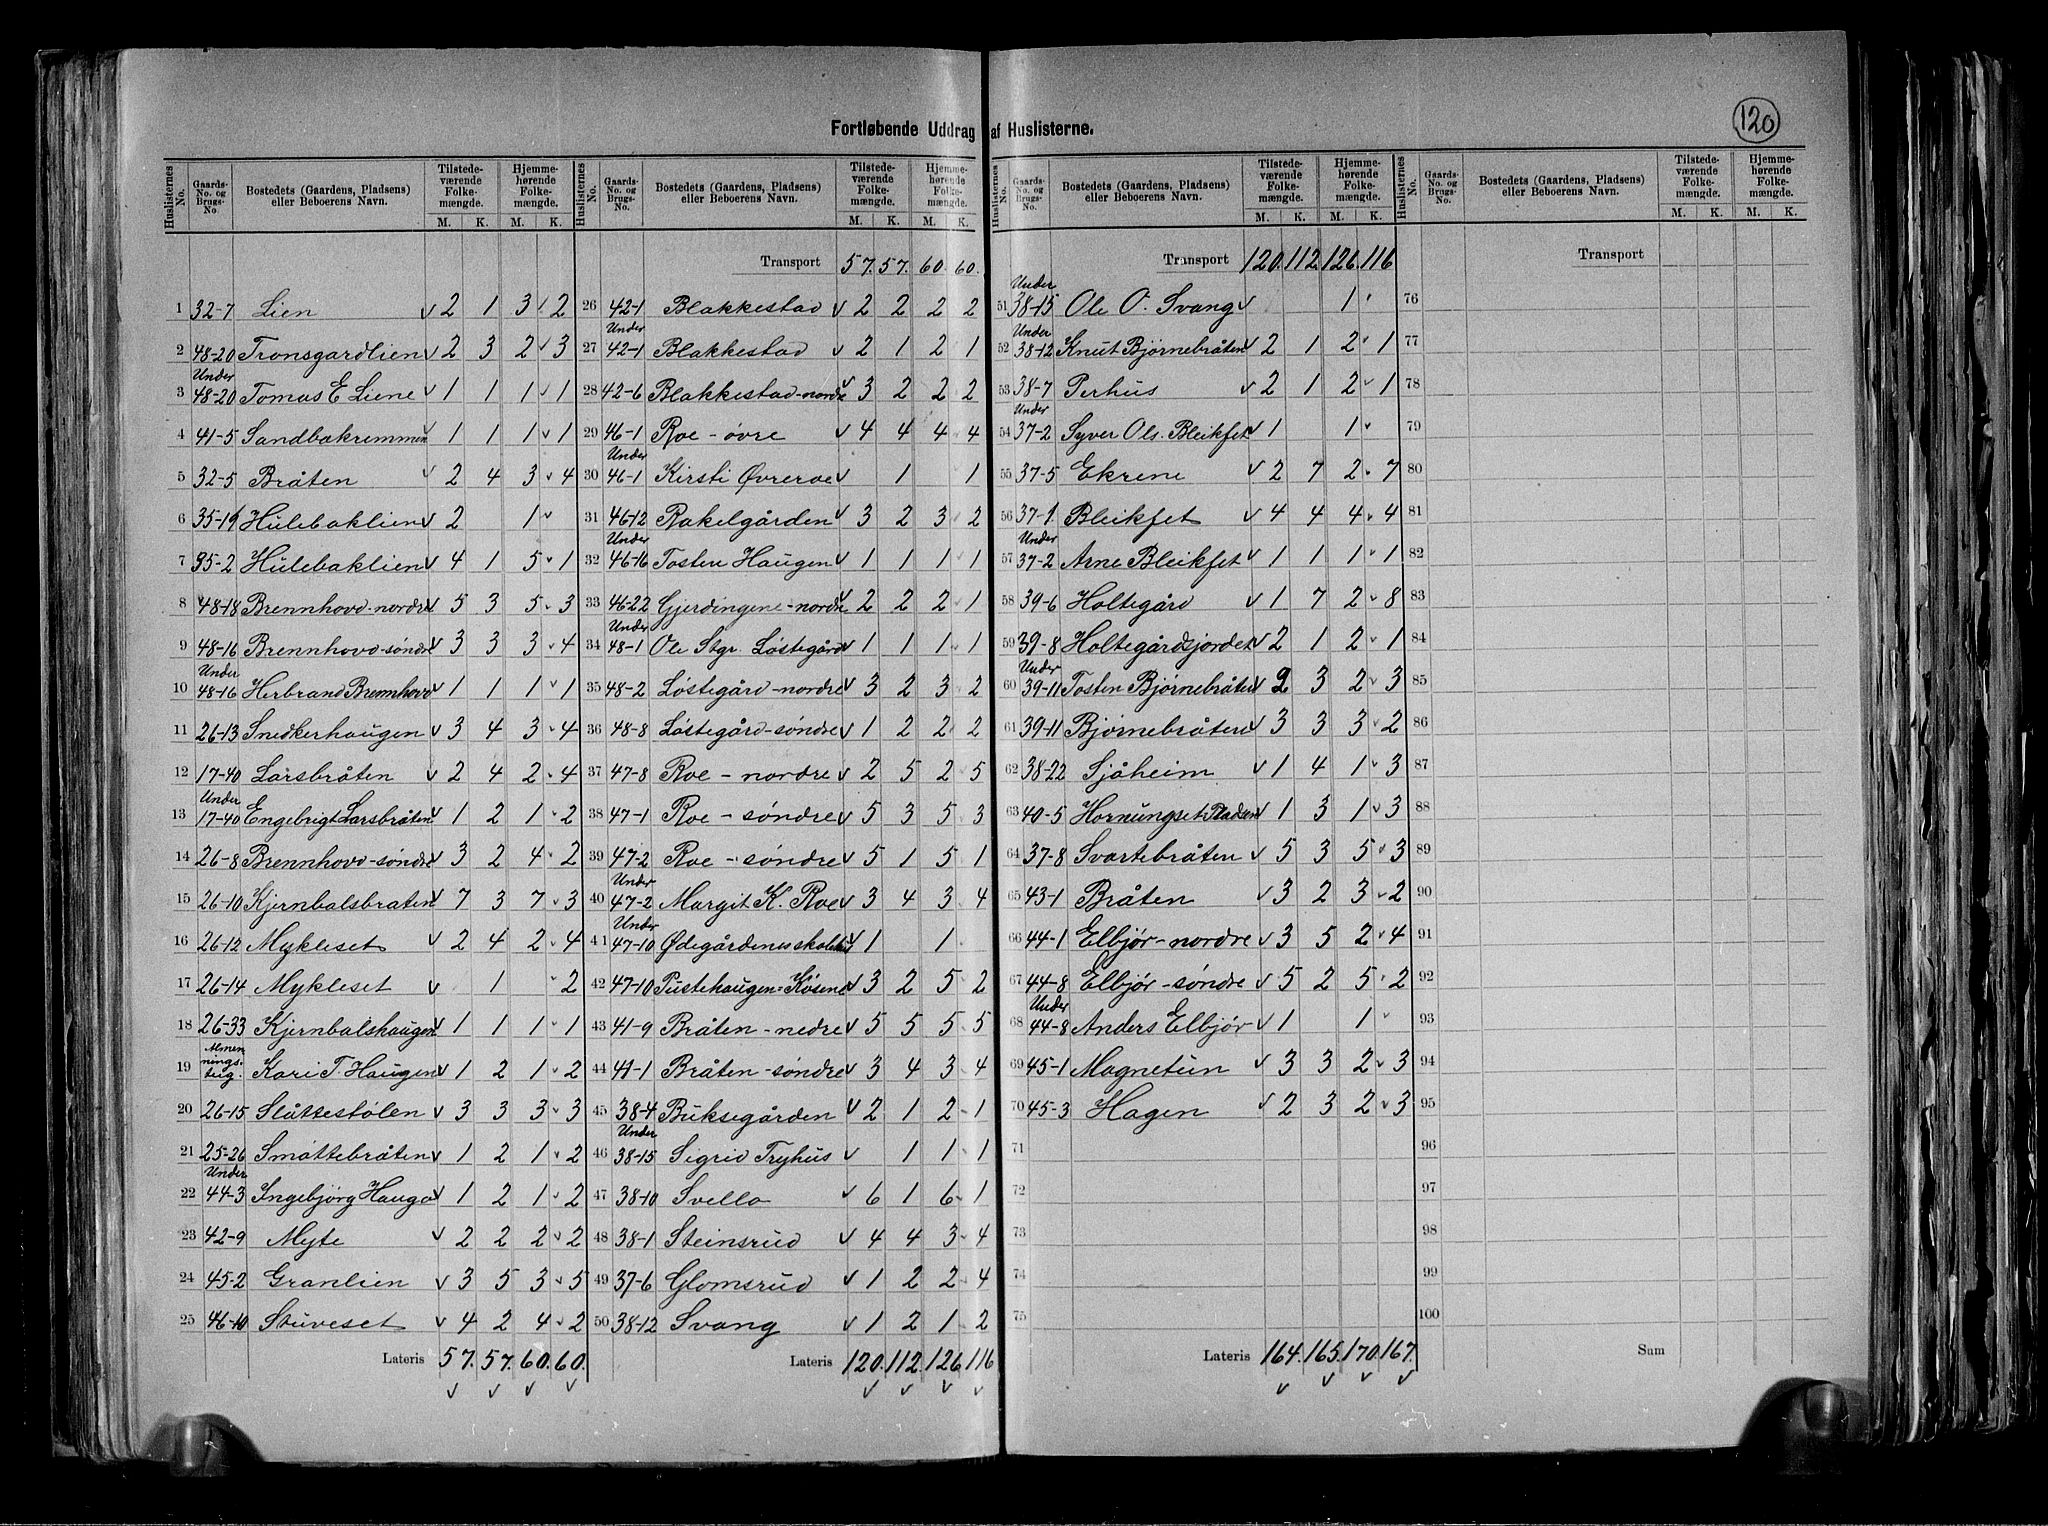 120
Fortløbende Uddrag af Huslisterne.
Huslisternes No. Gaards-No. og Brugs-No. Bostedets (Gaardens, Pladsens) eller Beboerens Navn. Tilstedeværende Folkemængde. M. K. Hjemmehørende Folkemængde. M. K.
1 32-7 Lien v 2 1 3 2
2 48-20 Tronsgardlien v 2 3 2 3
3 Under 48-20 Tomas E Liene v 1 1 1 1
4 41-5 Sandbakremmen v 1 1 1 1
5 32-5 Bråten v 2 4 3 4
6 35-19 Hulebaklien v 2 1
7 35-2 Hulebaklien v 4 1 5 1
8 48-18 Brennhovd-nordre v 5 3 5 3
9 48-16 Brennhovd-søndre v 3 3 3 4
10 Under 48-16 Herbrand Brennhovd v 1 1 1 1
11 26-13 Snedkerhaugen v 3 4 3 4
12 17-40 Larsbråten v 2 4 2 4
13 Under 17-40 Engebrigt Larsbråten v 1 2 1 2
14 26-8 Brennhovd-søndre v 3 2 4 2
15 26-10 Kjernbalsbraten v 7 3 7 3
16 26-12 Mykleset v 2 4 2 4
17 26-14 Mykleset v 1 2
18 26-33 Kjernbalshaugen v 1 1 1 1
19 Almenningstug. Kari T. Haugen v 1 2 1 2
20 26-15 Slåttestølen v 3 3 3 3
21 25-26 Smøttebråten v 1 2 1 2
22 Under 44-3 Ingebjørg Hauga v 1 2 1 2
23 42-9 Myte v 2 2 2 2
24 45-2 Granlien v 3 5 3 5
25 46-10 Stuveset v 4 2 4 2
Lateris 57. 57. 60. 60.
Huslisternes No. Gaards-No. og Brugs-No. Bostedets (Gaardens, Pladsens) eller Beboerens Navn. Tilstedeværende Folkemængde. M. K. Hjemmehørende Folkemængde. M. K.
Transport 57. 57. 60. 60.
26 42-1 Blakkestad v 2 2 2 2
27 Under 42-1 Blakkestad v 2 1 2 1
28 42-6 Blakkestad-nordre v 3 2 2 2
29 46-1 Roe - øvre v 4 4 4 4
30 Under 46-1 Kirsti Øvreroe v 1 1
31 46-12 Rakelgården v 3 2 3 2
32 Under 46-16 Tosten Haugen v 1 1 1 1
33 46-22 Gjerdingene-nordre v 2 2 2 1
34 Under 48-1 Ole Stgr. Løstegård v 1 1 1 1
35 48-2 Løstegård-nordre v 3 2 3 2
36 48-8 Løstegård-søndre v 1 2 2 2
37 47-8 Roe - nordre v 2 5 2 5
38 47-1 Roe - søndre v 5 3 5 3
39 47-2 Roe - søndre v 5 1 5 1
40 Under 47-2 Margit K. Roe v 3 4 3 4
41 Under 47-10 Ødegårdenes v 1 1
42 47-10 Pustehaugen=Køsene v 3 2 5 2
43 41-9 Bråten - nedre v 5 5 5 5
44 41-1 Bråten - søndre v 3 4 3 4
45 38-4 Buksegården v 2 1 2 1
46 Under 38-15 Sigrid Tryhus v 1 1 1
47 38-10 Svello v 6 1 6 1
48 38-1 Steinsrud v 4 4 3 4
49 37-6 Glomsrud v 1 2 2 4
50 38-12 Svang v 1 2 1 2
Lateris 120. 112. 126 116
Huslisternes No. Gaards-No. og Brugs-No. Bostedets (Gaardens, Pladsens) eller Beboerens Navn. Tilstedeværende Folkemængde. M. K. Hjemmehørende Folkemængde. M. K.
Transport 120. 112 126. 116
51 Under 38-15 Ole O. Svang v 1
52 Under 38-12 Knut Bjørnebråten v 2 1 2 1
53 38-7 Perhus v 2 1 2 1
54 Under 37-2 Syver Ols. Bleikfet v 1 1
55 37-5 Ekrene v 2 7 2 7
56 37-1 Bleikfet v 4 4 4 4
57 Under 37-2 Arne Bleikfet v 1 1 1 1
58 39-6 Holtegård v 1 7 2 8
59 39-8 Holtegårdsjordet v 2 1 2 1
60 Under 39-11 Tosten Bjørnebråten v 2 3 2 3
61 39-11 Bjørnebråten v 3 3 3 2
62 38-22 Sjåheim v 1 4 1 3
63 40-5 Hornungset Pladsen v 1 3 1 3
64 37-8 Svartebråten v 5 3 5 3
65 43-1 Bråten v 3 2 3 2
66 44-1 Elbjør-nordre v 3 5 2 4
67 44-8 Elbjør-søndre v 5 2 5 2
68 Under 44-8 Anders Elbjør v 1 1
69 45-1 Magnetun v 3 3 2 3
70 45-3 Hagen v 2 3 2 3
71
72
73
74
75
Lateris 164. 165. 170. 167.
Huslisternes No. Gaards-No. og Brugs-No. Bostedets (Gaardens, Pladsens) eller Beboerens Navn. Tilstedeværende Folkemængde. M. K. Hjemmehørende Folkemængde. M. K.
Transport
76
77
78
79
80
81
82
83
84
85
86
87
88
89
90
91
92
93
94
95
96
97
98
99
100
Sum